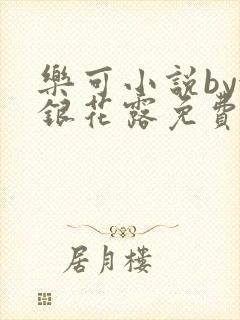 樂可小說by
銀花露免費
居月樓